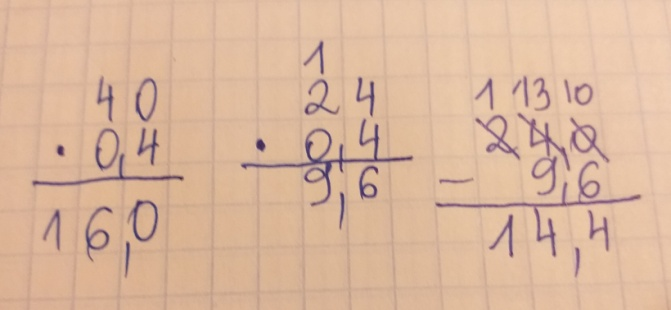 40
· 0,4
16,0
1
24
· 0,4
9,6
1 13 10
24,0
- 9,6
14,4